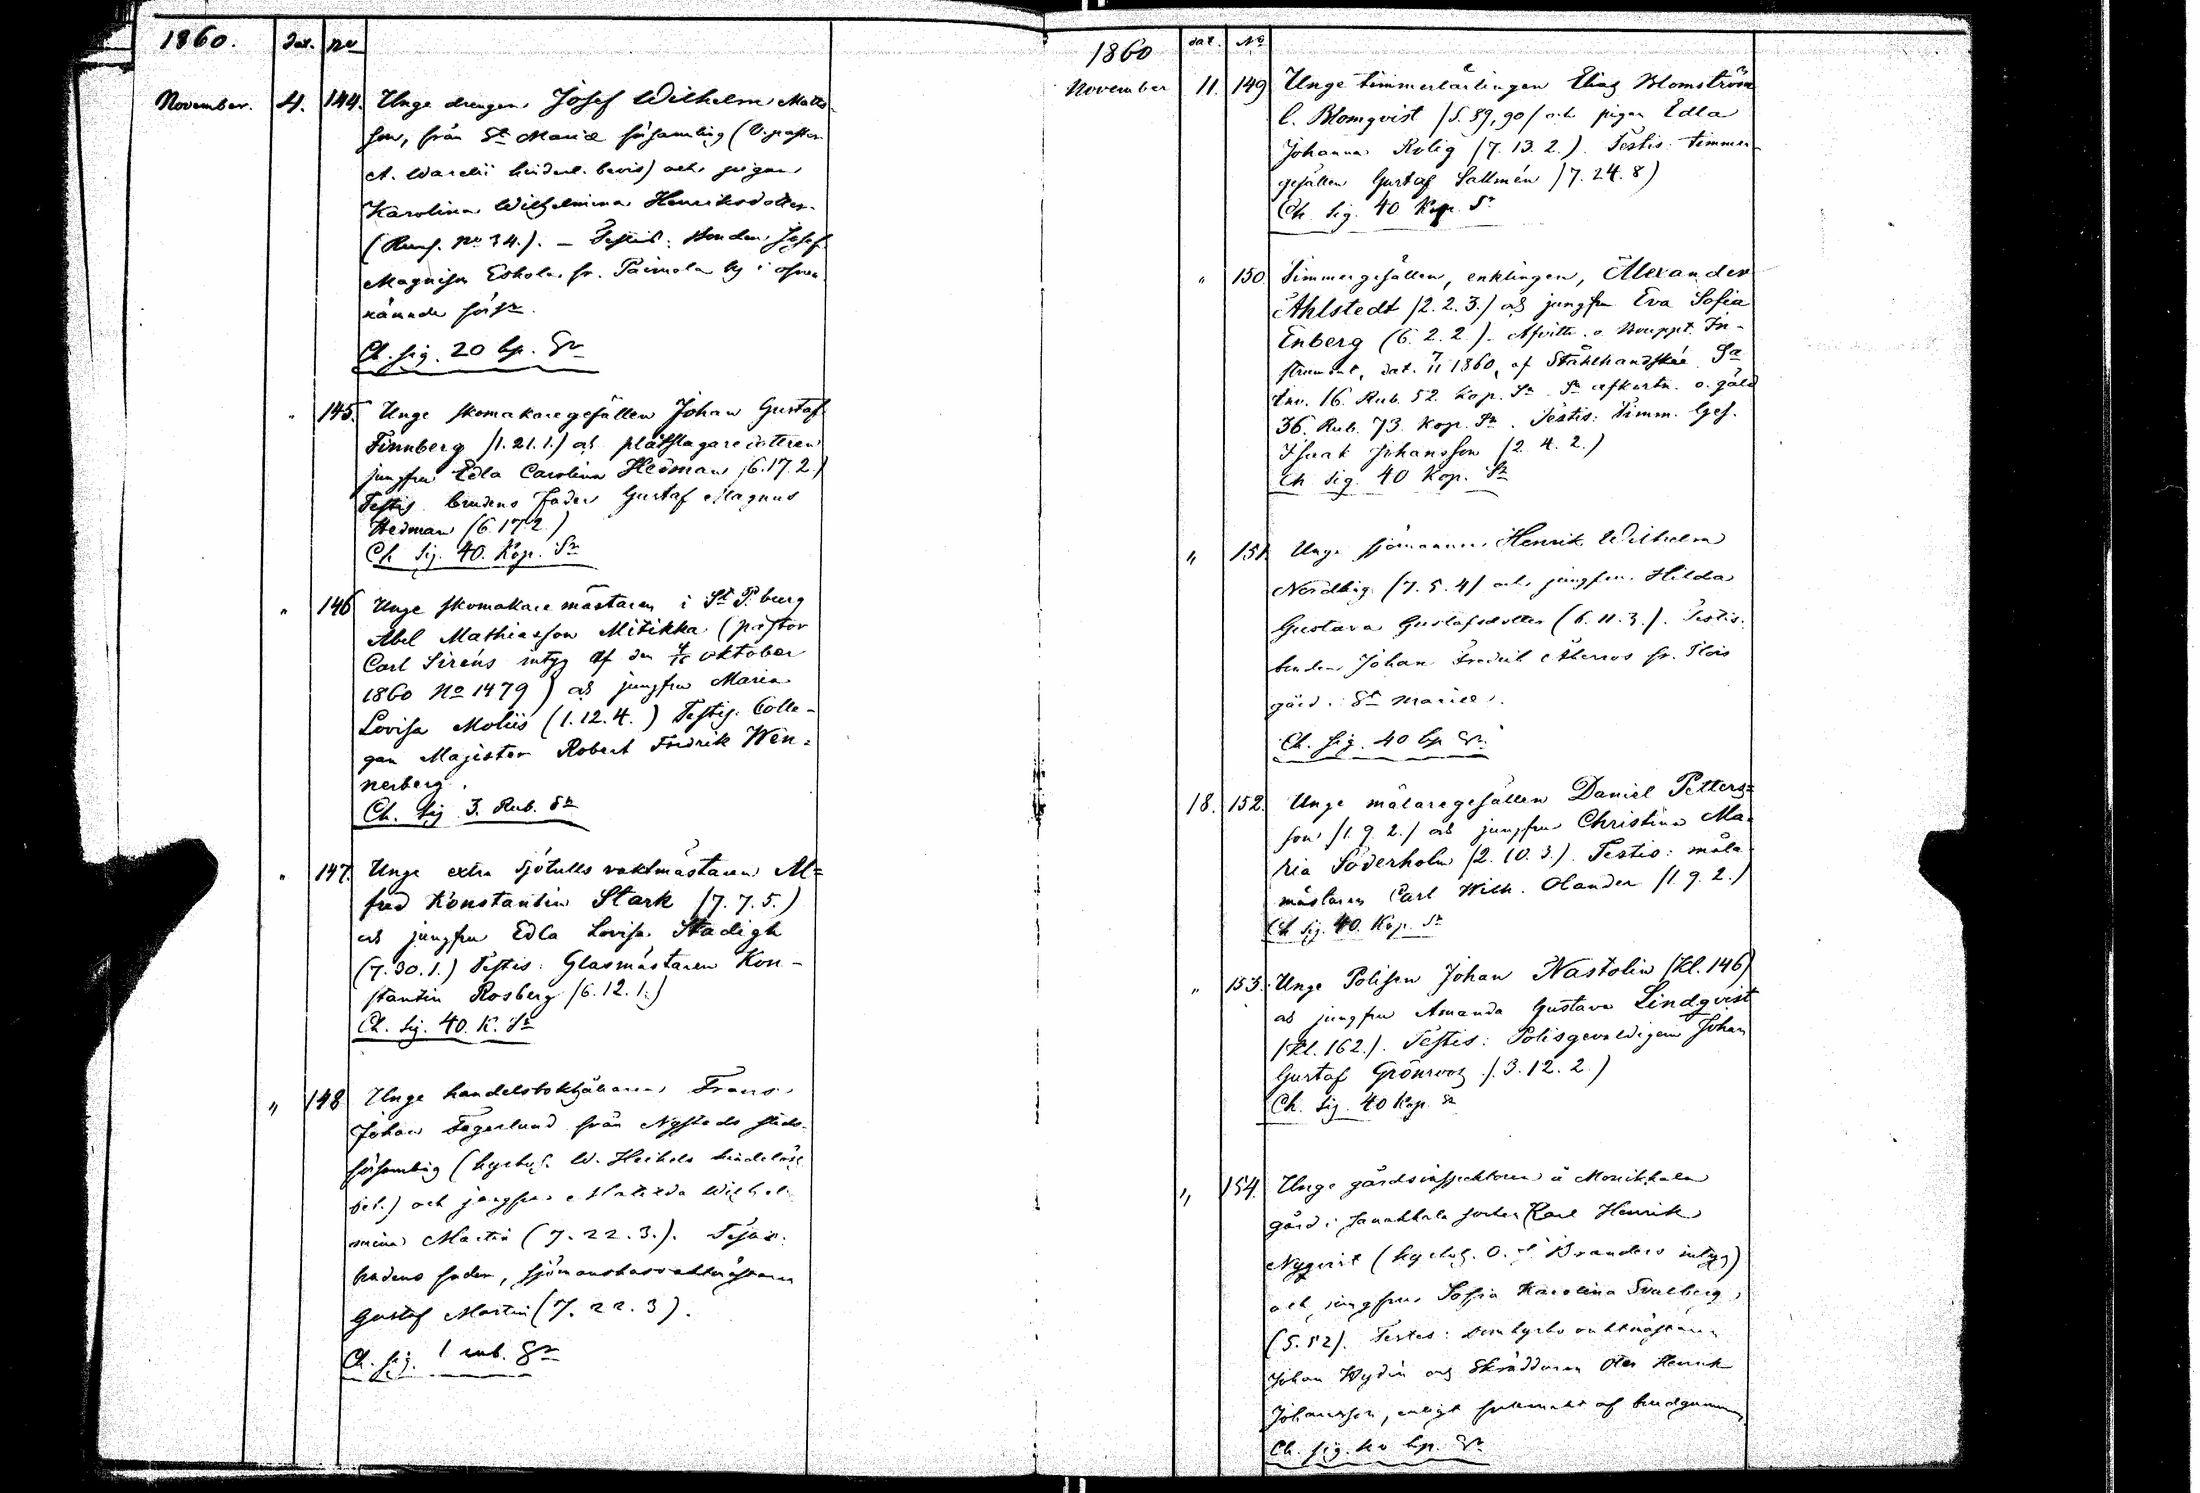 1860. dat. no
November. 4. 144. Unge drengen Josef Wilhelm Matts-
son, från St Mariæ församling (V. pastor
A. Warelii hinderl. bevis) och pigan
Karolina Wilhelmina Henriksdotter
(Runs. no 34.). – Testis: bonden Josef
Magnisson Eskola fr. Paimola by i ofvan
nämnde förs:n.
Ch. sig. 20 kp. Sr
" 145. Unge skomakaregesällen Johan Gustaf
Finnberg (1. 21. 1.) och plåtslagaredottren
jungfru Edla Carolina Hedman (6. 17. 2.)
Testis brudens fader Gustaf Magnus
Hedman (6. 17. 2.)
Ch. Sig. 40. Kop. Sr
" 146 Unge skomakare mästaren i St P.burg
Abel Mathiasson Mitikka (pastor
Carl Siréns intyg af den 4/16 oktober
1860 No 1479) och jungfru Maria
Lovisa Moliis (1. 12. 4.) Testis. Colle-
gan Magister Robert Fredrik Wen-
nerberg.
Ch. Sig 3. Rub. Sr
" 147. Unge extra Sjötulls vaktmästaren Al=
fred Konstantin Stark (7. 7. 5.)
och jungfru Edla Lovisa Stadigh
(7. 30. 1.) Testis: Glasmästaren Kon-
stantin Rosberg (6. 12. 1.)
Ch. Sig. 40. K. Sr
" 148 Unge handelsbokhållaren Frans
Johan Fagerlund från Nystads stads-
församling (kyrkoh. W. Heikels hinderlösh.
bet.) och jungfru Matilda Wilhel-
mina Martin (7. 22. 3.). Testis:
brudens fader,
Gustaf Martin (7. 22. 3).
Ch. sig. 1 rub. Sr
1860 dat. No
November 11. 149 Unge timmerlärlingen Elias Blomström
l. Blomqvist (S. 89, 90) och pigan Edla
Johanna Rolig (7. 13. 2.). Testis: timmer-
gesällen Gustaf Sallmén (7. 24. 8)
Ch. Sig. 40 Kop. Sr
" 150. Timmergesällen, enklingen, Alexander
Ahlstedt (2. 2. 3.) och jungfru Eva Sofia
Enberg (6. 2. 2.). Afvittr. o Bouppt. In-
strument, dat. 1860, af Stålhandske. Sa
Inv. 16. Rub. 52 Kop. Sr Sa afkortn. o. gäld
36. Rub. 73. Kop. Sr. Testis: Timm. Ges.
Isaak Johansson (2. 4. 2.)
Ch Sig. 40 Kop. Sr
" 151. Unge sjömannen Henrik Wilhelm
Nordling (7. 5. 4) och jungfru Hilda
Gustava Gustafsdotter (6. 11. 3.). Testis:
bonden Johan Fredrik fr.
gård. St Mariæ.
Ch. sig. 40 kp Sr.
18. 152. Unge målaregesällen Daniel Petters=
son (1. 9. 2.) och jungfru Christina Ma-
ria Söderholm (2. 10. 3.). Testis: måla
mästaren Carl Wilh. Olander (1. 9. 2.)
Ch Sig. 40. Kop. Sr
" 153. Unge Polisen Johan Nastolin (Kl. 146)
och jungfru Amanda Gustava Lindqvist
(Kl. 162.). Testis: Polisgevaldigern Johan
Gustaf Grönroos (3. 12. 2.)
Ch. Sig. 40 Kop. Sr
" 154. Unge gårdsinspektoren å Monikkala
gård i Janakkala socken Karl Henrik
Nyqvist (kyrkoh. O. Branders intyg)
och jungfru Sofia Karolina Svalberg
(S. 52). Testes: domkyrko vaktmästaren
Johan Wydin och Skräddaren Otto Henrik
Johansson, enligt fullmakt af brudgummen
Ch. sig. 40 kp. Sr